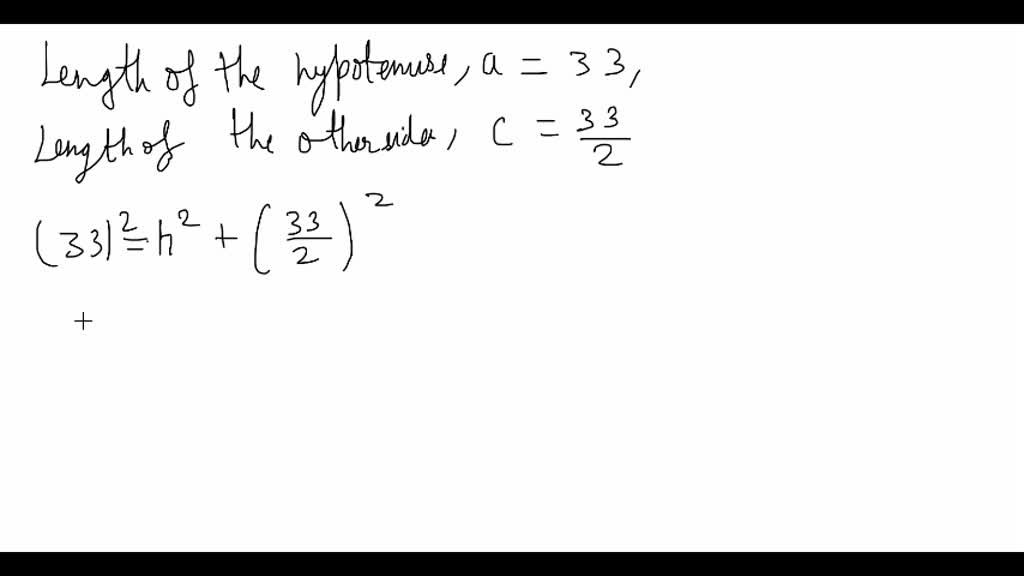 Length of the hypotenuse, a = 33,
Length of the other side, c = 33/2
(33)² = h² + (33/2)²
+